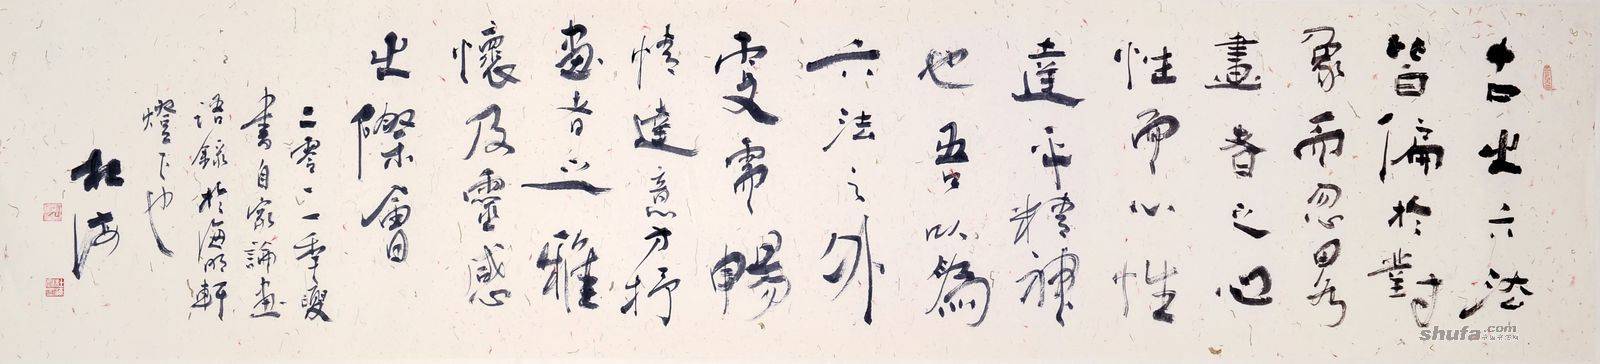 古之六法
皆偏於對
象而忽畧
畫者之心
性而心性
達乎精神
也吾以為
六法之外
更需暢
情達意方抒
畫者之雅
懷及靈感
之際會
二零一一年夏
書自家論畫
語錄於海明軒
燈下也
shufa.com